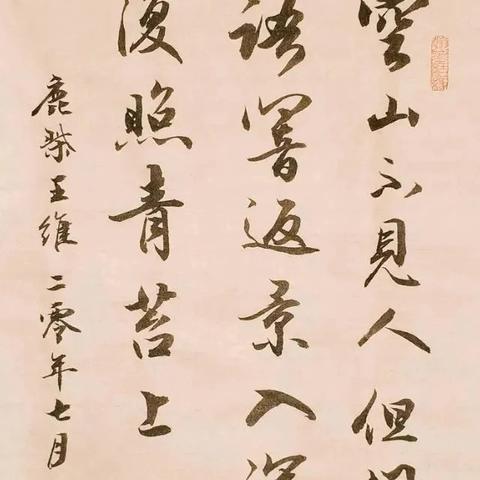 空山不見人但聞
語響返景入深
復照青苔上
鹿柴王維二零年七月